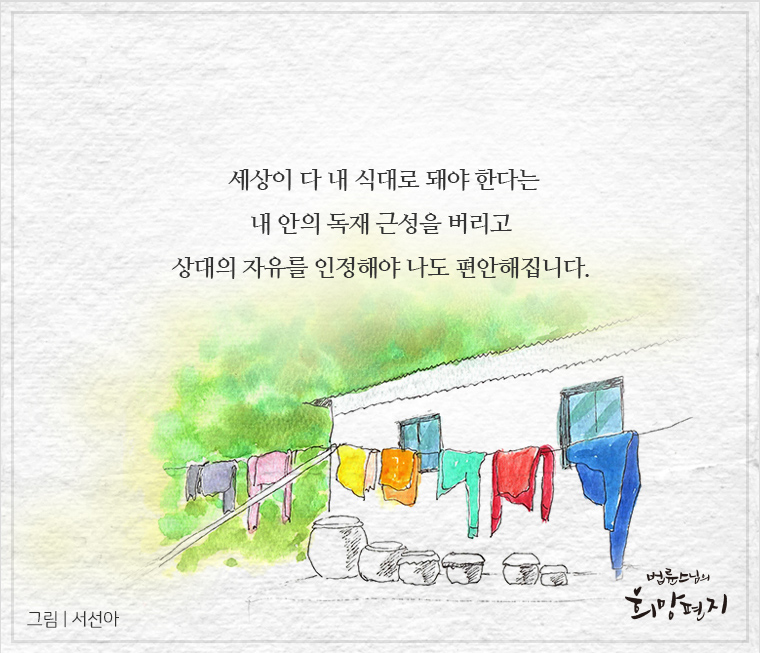 세상이 다 내 식대로 돼야 한다는
내 안의 독재 근성을 버리고
상대의 자유를 인정해야 나도 편안해집니다.
법륜스님의
희망편지
그림 | 서선아